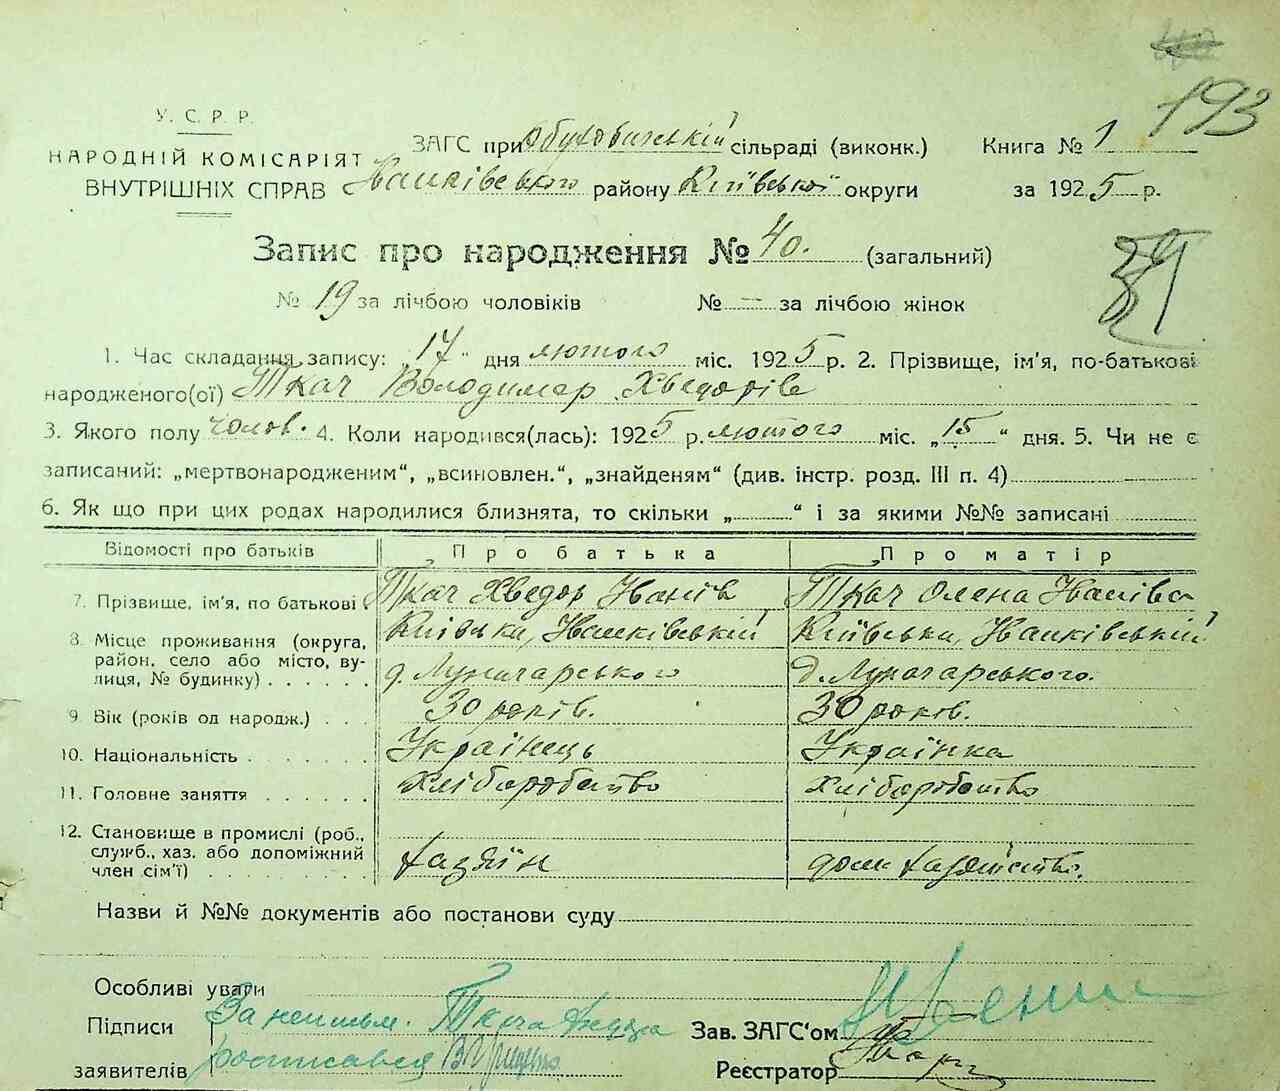 193
У. С. Р. Р.
НАРОДНІЙ КОМІСАРІЯТ
ВНУТРІШНІХ СПРАВ
ЗАГС при Обуховичській сільраді (виконк.) Книга № 1
Іванківського району Київської округи за 1925 р.
Запис про народження № 40. (загальний)
№ 19 за лічбою чоловіків № — за лічбою жінок
1. Час складання запису: „17“ дня лютого міс. 1925 р. 2. Прізвище, ім'я, по-батькові
народженого(ої) Ткач Володимир Хведорів
3. Якого полу чолов. 4. Коли народився(лась): 1925 р. лютого міс. „15“ дня. 5. Чи не є
записаний: „мертвонародженим“, „всиновлен.“, „знайденям“ (див. інстр. розд. III п. 4)
6. Як що при цих родах народилися близнята, то скільки „ “ і за якими №№ записані
Відомості про батьків Про батька Про матір
7. Прізвище, ім'я, по батькові Ткач Хведор Іванів Ткач Олена Іванівна
8. Місце проживання (округа, Київська, Іванківський Київська, Іванківський
район, село або місто, ву-
лиця, № будинку) д. Луначарського д. Луначарського.
9. Вік (років од народж.) 30 років. 30 років.
10. Національність Українець Українка
11. Головне заняття хліборобство хліборобство
12. Становище в промислі (роб.,
служб., хаз. або допоміжний хазяїн дом
член сім'ї)
Назви й №№ документів або постанови суду
Особливі уваги
Підписи За неписьм. Ткача Зав. ЗАГС'ом
заявителів росписався Реєстратор